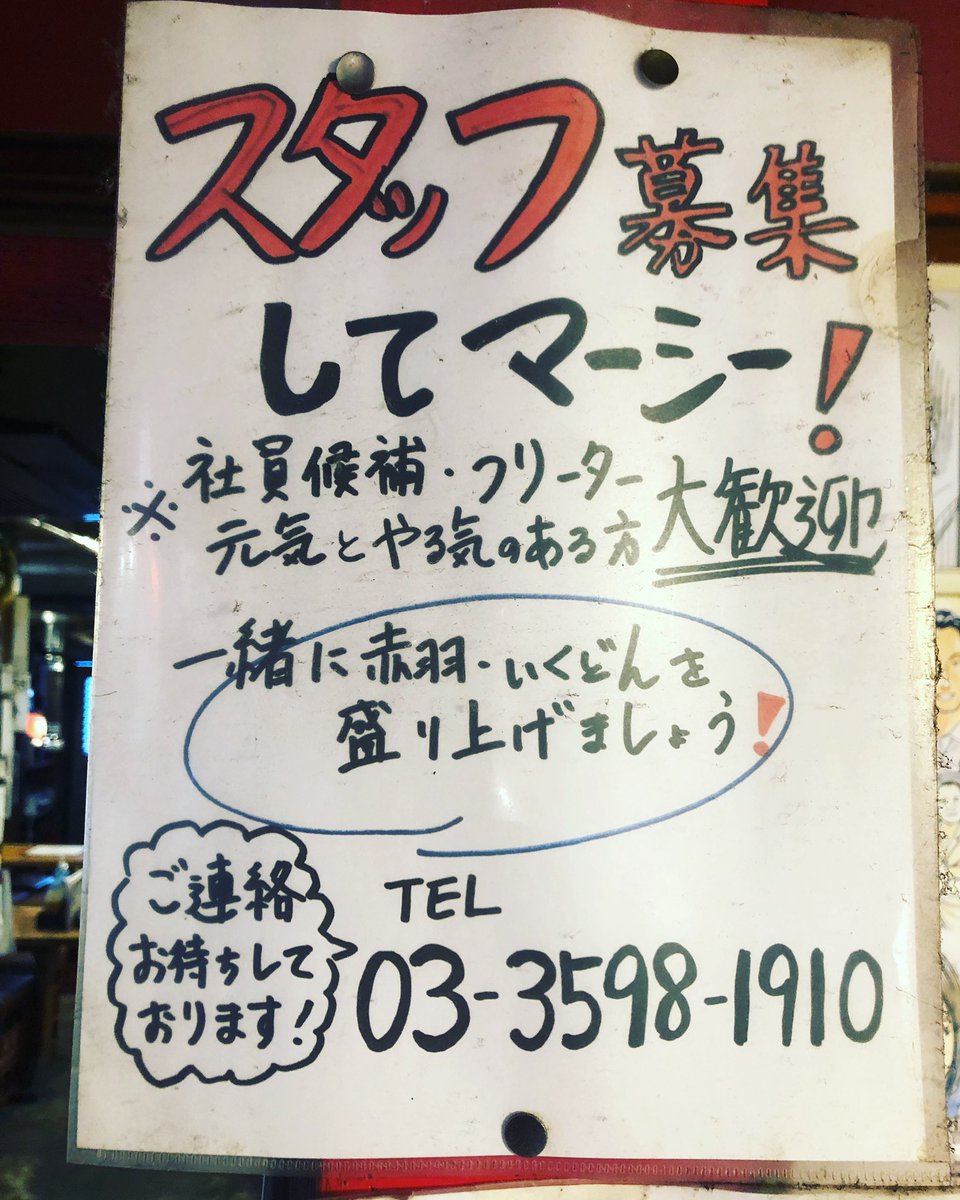 スタッフ募集
してマーシー!
※社員候補・フリーター
元気とやる気のある方 大歓迎
一緒に赤羽・いくどんを
盛り上げましょう!
ご連絡
お待ちして
おります!
TEL
03-3598-1910